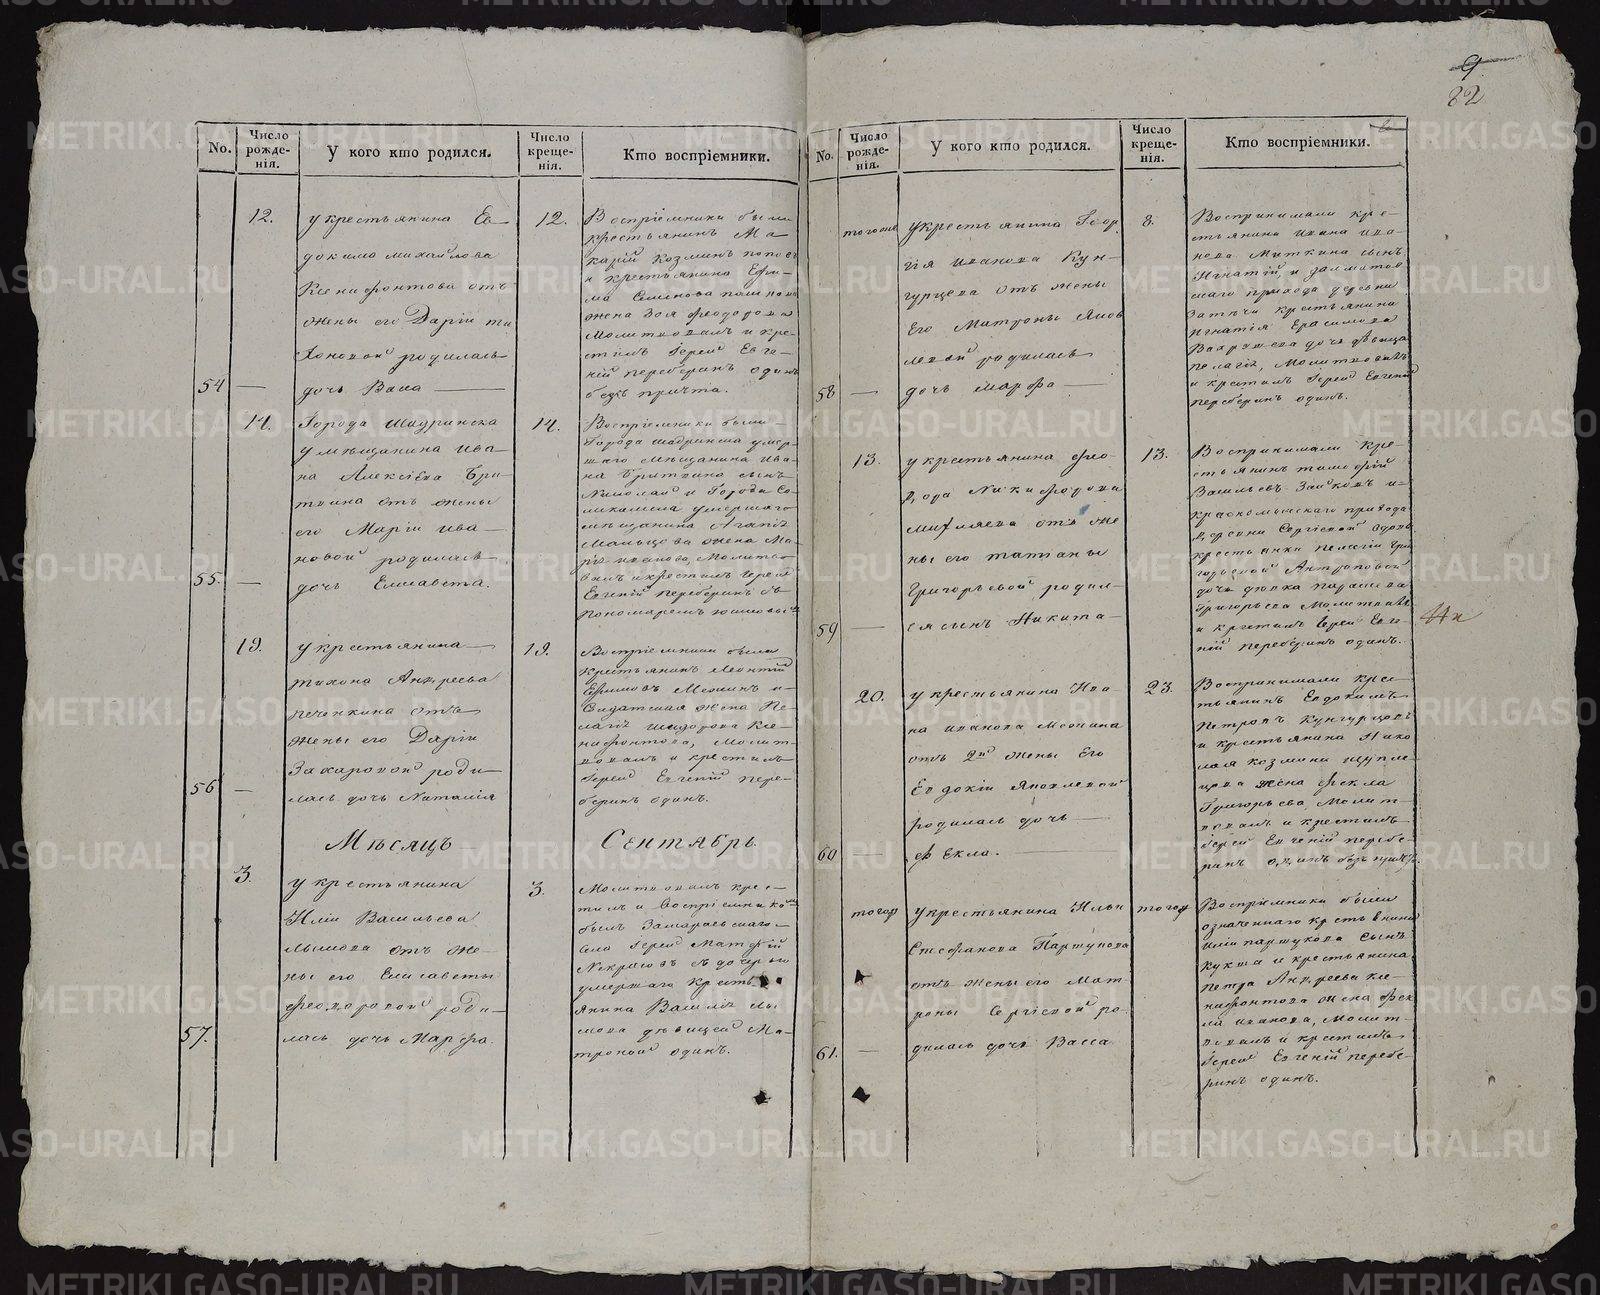 9
82
No.
Число рожденія.
У кого кто родился.
Число крещенія.
Кто воспріемники.
12.
у крестьянина Ев-
докима Михайлова
Ксенифонтова отъ
жены его Даріи Ти
хоновой родилась
54
дочь Васса
12.
Воспріемники были
крестьянинъ Ма-
карій Козминъ Поповъ
и крестьянина Ефи-
ма Семенова
жена Зоя Феодорова
Молитвовалъ и кре-
стилъ Іерей Евге-
ній Переберинъ одинъ
безъ причта.
14.
Города Шадринска
у мѣщанина Ива-
на Алексѣева Бри
твина отъ жены
его Маріи Ива-
новой родилась
55.
дочь Елисавета.
14.
Воспріемники были
Города Шадринска умер-
шаго мѣщанина Ива-
на Бритвина сынъ
Николай и Города Со
ликамска умершаго
мѣщанина Агапія
Мальцова жена Ма-
рія Иванова, Молитво-
валъ и крестилъ Іерей
Евгеній Переберинъ съ
пономаремъ
19.
у крестьянина
Тихона Андреева
Печенкина отъ
жены его Даріи
Захаровой роди-
56
лась дочь Наталія
19.
Воспріемники были
Крестьянинъ Леонтій
Ефимовъ и
Солдатская жена Пе-
лагія Исидорова Ксе-
нифонтова, Молит-
вовалъ и крестилъ
Іерей Евгеній Пере-
беринъ одинъ.
Мѣсяцъ
Сентябрь.
3.
у крестьянина
Иліи Васильева
отъ же-
ны его Елисаветы
Феодоровой роди-
57.
лась дочь Марфа.
3.
Молитвовалъ крес-
тилъ и Воспріемникомъ
былъ Замараевскаго
села Іерей Матфій
Некрасовъ съ дочерью
умершаго кресть-
янина Василія
дѣвицей Ма-
троной одинъ.
No.
Число рожденія.
У кого кто родился.
Число крещенія.
Кто воспріемники.
тогоже
у крестьянина Геор
гія Иванова Кун-
гурцева отъ жены
его Матроны Яков
левой родилась
58
дочь Марфа
8.
Воспринимали кре-
стьянина Ивана Ива-
нова Миткина сынъ
Игнатій, и Далматов
скаго прихода деревни
Затечи крестьянина
Игнатія Ерасимова
Вахрушева дочь дѣвица
Пелагія, Молитвовалъ
и крестилъ Іерей Евгеній
Переберинъ одинъ.
13.
у крестьянина Фео-
дора Никифорова
отъ же
ны его Татіаны
Григорьевой родил-
59
ся сынъ Никита
13.
Воспринимали кре-
стьянинъ Тимофій
Васильевъ и
прихода
деревни Сергіевой вдовы
крестьянки Пелагіи Гри
горьевой Антроповой
дочь дѣвка Параскева
Григорьева Молитвовалъ
и крестилъ Іерей Евге-
ній Переберинъ одинъ.
20.
у крестьянина Ива-
на Иванова
отъ 2й жены его
Евдокіи Яковлевой
родилась дочь
60
Фекла.
23.
Воспринимали крес-
тьянинъ Евдокимъ
Петровъ Кунгурцовъ
и крестьянина Нико
лая Козмина Щупле-
цова жена Фекла
Григорьева, Молит-
вовалъ и крестилъ
Іерей Евгеній Перебе-
ринъ одинъ безъ причта
тогоже
у крестьянина Ильи
Стефанова Паршукова
отъ жены его Мат-
роны Сергіевой ро-
61.
дилась дочь Васса
тогоже
Воспріемники были
означеннаго крестьянина
Иліи Паршукова сынъ
Кукша и крестьянина
Петра Андреева Ксе-
нифонтова жена Фек
ла Иванова, Молит-
вовалъ и крестилъ
Іерей Евгеній Перебе-
ринъ одинъ.